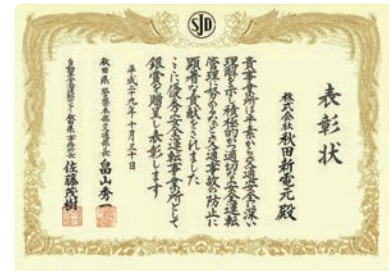 SJD
表彰状
株式会社秋田新電元殿
貴事業所は平素から交通安全に深い
理解を示し積極的かつ適切な安全運転
管理に努めるなど交通事故の防止に
顕著な貢献をされました
ここに優秀安全運転事業所として
銀賞を贈呈し表彰します
平成二十九年十月三十日
秋田県警察本部交通部長 畠山秀一
自動車安全運転センター秋田県事務所長 佐藤茂樹